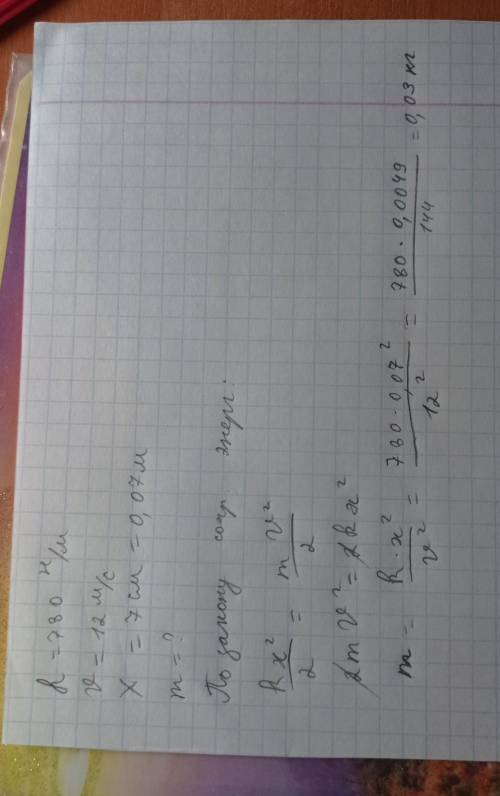 k = 780 Н/м
v = 12 м/с
X = 7 см = 0,07 м
m = ?
По закону сохр. энерг:
kx²/2 = mv²/2
2mv² = 2kx²
m = k·x²/v² = 780·0,07²/12² = 780·0,0049/144 = 0,03 кг